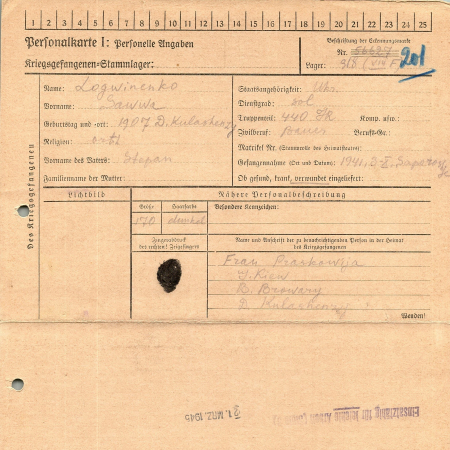 1 2 3 4 5 6 7 8 9 10 11 12 13 14 15 16 17 18 19 20 21 22 23 24 25
Personalkarte I: Personelle Angaben
Beschriftung der Erkennungsmarke
Nr. 201
Kriegsgefangenen-Stammlager:
Lager: 318 (VIII F)
Des Kriegsgefangenen
Name: Logwinenko
Staatsangehörigkeit: Ukr.
Vorname: Sawwa
Dienstgrad: sol
Geburtstag und -ort: 1907 D. Kulashenzy
Truppenteil: 440 SR Komp. usw.:
Religion: ort.
Zivilberuf: Bauer Berufs-Gr.:
Matrikel Nr. (Stammrolle des Heimatstaates):
Vorname des Vaters: Stepan
Gefangennahme (Ort und Datum): 1941, 3.
Familienname der Mutter:
Ob gesund, krank, verwundet eingeliefert:
Lichtbild
Nähere Personalbeschreibung
Größe Haarfarbe Besondere Kennzeichen:
170 dunkel
Fingerabdruck
des rechten! Zeigefingers
Name und Anschrift der zu benachrichtigenden Person in der Heimat
des Kriegsgefangenen
Frau
G. Kiew
B. Browary
D. Kulashenzy
Wenden!
21. MRZ. 1945
Einsatzfähig für